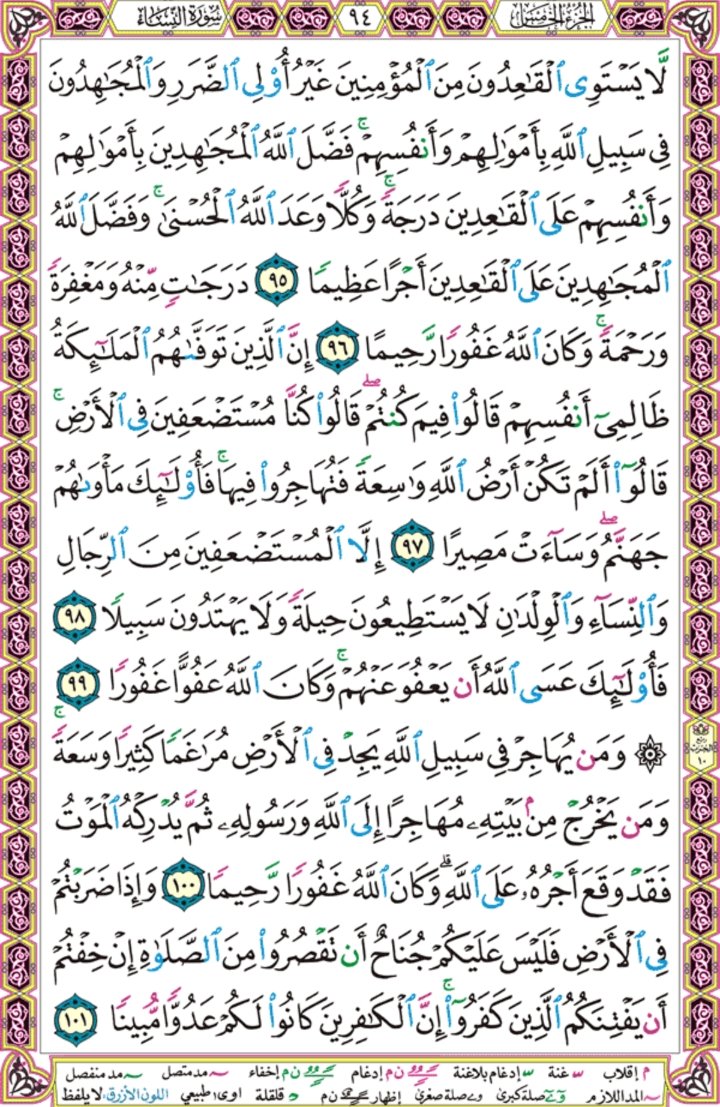 سورة النساء ٩٤ الجزء الخامس
لَّا يَسْتَوِى ٱلْقَٰعِدُونَ مِنَ ٱلْمُؤْمِنِينَ غَيْرُ أُو۟لِى ٱلضَّرَرِ وَٱلْمُجَٰهِدُونَ
فِى سَبِيلِ ٱللَّهِ بِأَمْوَٰلِهِمْ وَأَنفُسِهِمْ ۚ فَضَّلَ ٱللَّهُ ٱلْمُجَٰهِدِينَ بِأَمْوَٰلِهِمْ
وَأَنفُسِهِمْ عَلَى ٱلْقَٰعِدِينَ دَرَجَةً ۚ وَكُلًّا وَعَدَ ٱللَّهُ ٱلْحُسْنَىٰ ۚ وَفَضَّلَ ٱللَّهُ
ٱلْمُجَٰهِدِينَ عَلَى ٱلْقَٰعِدِينَ أَجْرًا عَظِيمًا ٩٥ دَرَجَٰتٍ مِّنْهُ وَمَغْفِرَةً
وَرَحْمَةً ۚ وَكَانَ ٱللَّهُ غَفُورًا رَّحِيمًا ٩٦ إِنَّ ٱلَّذِينَ تَوَفَّىٰهُمُ ٱلْمَلَٰٓئِكَةُ
ظَالِمِىٓ أَنفُسِهِمْ قَالُوا۟ فِيمَ كُنتُمْ ۖ قَالُوا۟ كُنَّا مُسْتَضْعَفِينَ فِى ٱلْأَرْضِ ۚ
قَالُوٓا۟ أَلَمْ تَكُنْ أَرْضُ ٱللَّهِ وَٰسِعَةً فَتُهَاجِرُوا۟ فِيهَا ۚ فَأُو۟لَٰٓئِكَ مَأْوَىٰهُمْ
جَهَنَّمُ ۖ وَسَآءَتْ مَصِيرًا ٩٧ إِلَّا ٱلْمُسْتَضْعَفِينَ مِنَ ٱلرِّجَالِ
وَٱلنِّسَآءِ وَٱلْوِلْدَٰنِ لَا يَسْتَطِيعُونَ حِيلَةً وَلَا يَهْتَدُونَ سَبِيلًا ٩٨
فَأُو۟لَٰٓئِكَ عَسَى ٱللَّهُ أَن يَعْفُوَ عَنْهُمْ ۚ وَكَانَ ٱللَّهُ عَفُوًّا غَفُورًا ٩٩
۞ وَمَن يُهَاجِرْ فِى سَبِيلِ ٱللَّهِ يَجِدْ فِى ٱلْأَرْضِ مُرَٰغَمًا كَثِيرًا وَسَعَةً ۚ
وَمَن يَخْرُجْ مِنۢ بَيْتِهِۦ مُهَاجِرًا إِلَى ٱللَّهِ وَرَسُولِهِۦ ثُمَّ يُدْرِكْهُ ٱلْمَوْتُ
فَقَدْ وَقَعَ أَجْرُهُۥ عَلَى ٱللَّهِ ۗ وَكَانَ ٱللَّهُ غَفُورًا رَّحِيمًا ١٠٠ وَإِذَا ضَرَبْتُمْ
فِى ٱلْأَرْضِ فَلَيْسَ عَلَيْكُمْ جُنَاحٌ أَن تَقْصُرُوا۟ مِنَ ٱلصَّلَوٰةِ إِنْ خِفْتُمْ
أَن يَفْتِنَكُمُ ٱلَّذِينَ كَفَرُوٓا۟ ۚ إِنَّ ٱلْكَٰفِرِينَ كَانُوا۟ لَكُمْ عَدُوًّا مُّبِينًا ١٠١
ربع الحزب ١٠
م إقلاب س غنة س إدغام بلاغنة ن م إدغام ن م إخفاء ~ مد متصل ~ مد منفصل
~ المد اللازم صلة كبرى صلة صغرى إظهار ن م قلقلة اوى ا طبيعي اللون الأزرق لا يلفظ